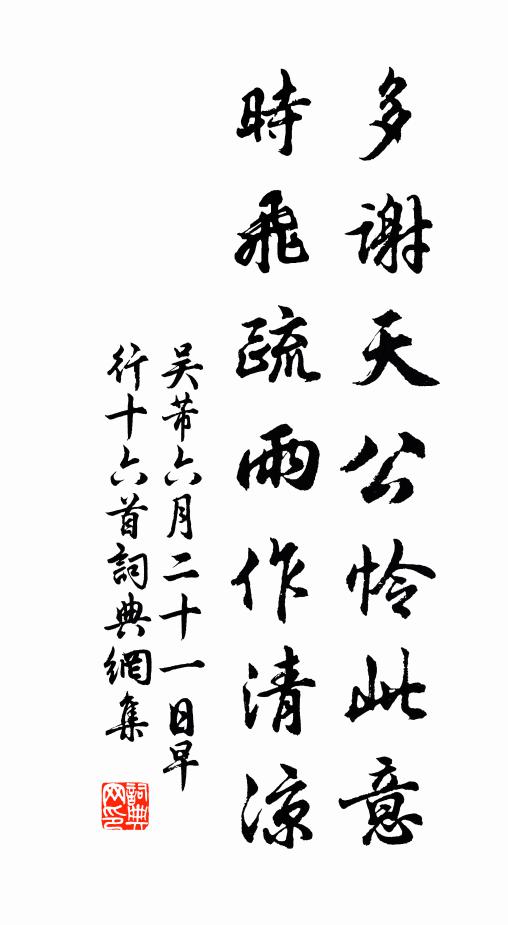 多謝天公怜此意
時飛疏雨作清凉
吴芾六月二十一日早
行十六首詞典網集
詞典网印